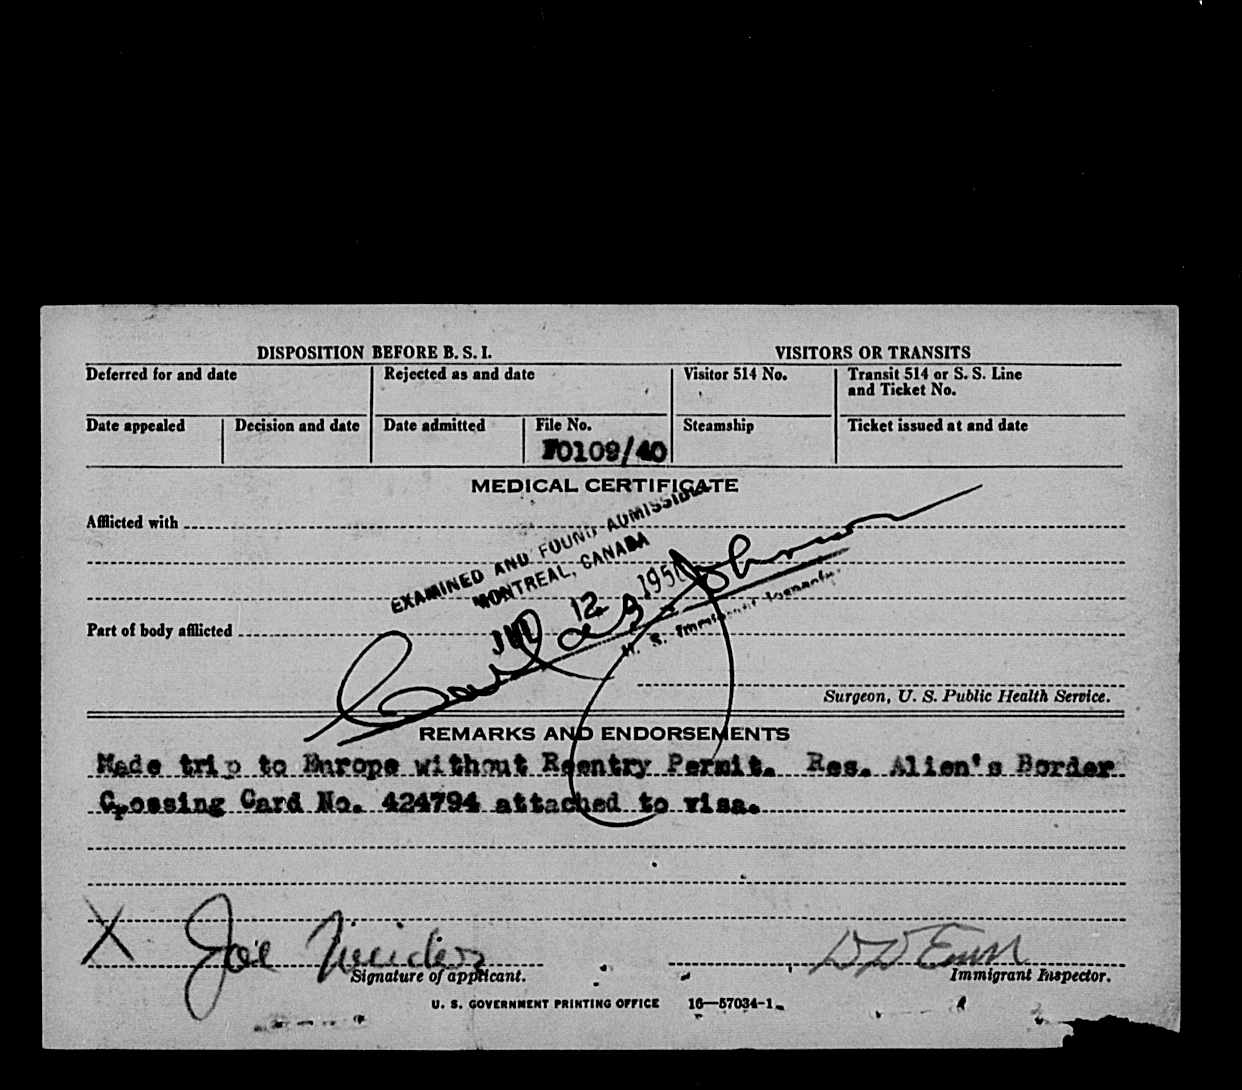 DISPOSITION BEFORE B. S. I. VISITORS OR TRANSITS
Deferred for and date Rejected as and date Visitor 514 No. Transit 514 or S. S. Line
and Ticket No.
Date appealed Decision and date Date admitted File No. Steamship Ticket issued at and date
F0109/40
MEDICAL CERTIFICATE
Afflicted with
EXAMINED AND FOUND ADMISSIBLE
MONTREAL, CANADA
JUL 12 1950
Carl Johnson
U. S. Immigrant Inspector.
Part of body afflicted
Surgeon, U. S. Public Health Service.
REMARKS AND ENDORSEMENTS
Made trip to Europe without Reentry Permit. Res. Alien's Border
Crossing Card No. 424794 attached to visa.
X Joe
Signature of applicant. Immigrant Inspector.
U. S. GOVERNMENT PRINTING OFFICE 16—57034-1